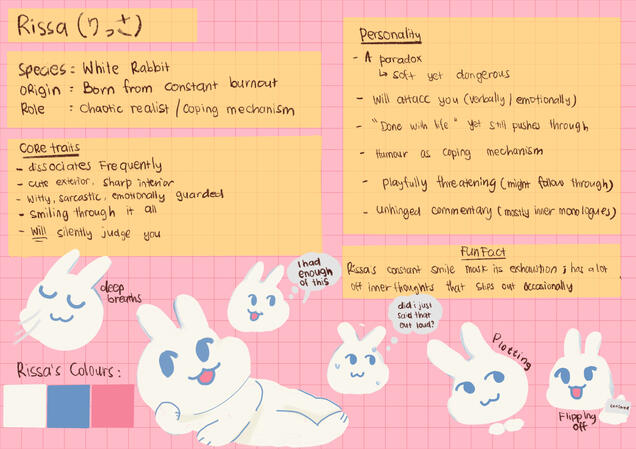 Rissa (りっさ)
Species : White Rabbit
Origin : Born from constant burnout
Role : Chaotic realist / coping mechanism
Core traits
- dissociates frequently
- cute exterior, sharp interior
- witty, sarcastic, emotionally guarded
- smiling through it all
- Will silently judge you
Personality
- A paradox
↳ soft yet dangerous
- Will attacc you (verbally / emotionally)
- "Done with life" yet still pushes through
- Humour as coping mechanism
- playfully threatening (might follow through)
- unhinged commentary (mostly inner monologues)
Fun Fact
Rissa's constant smile mask its exhaustion ; has a lot
off inner thoughts that slips out occasionally
deep
breaths
I had
enough
of this
did i just
said that
out loud?
Plotting
Flipping
off
Rissa's Colours :